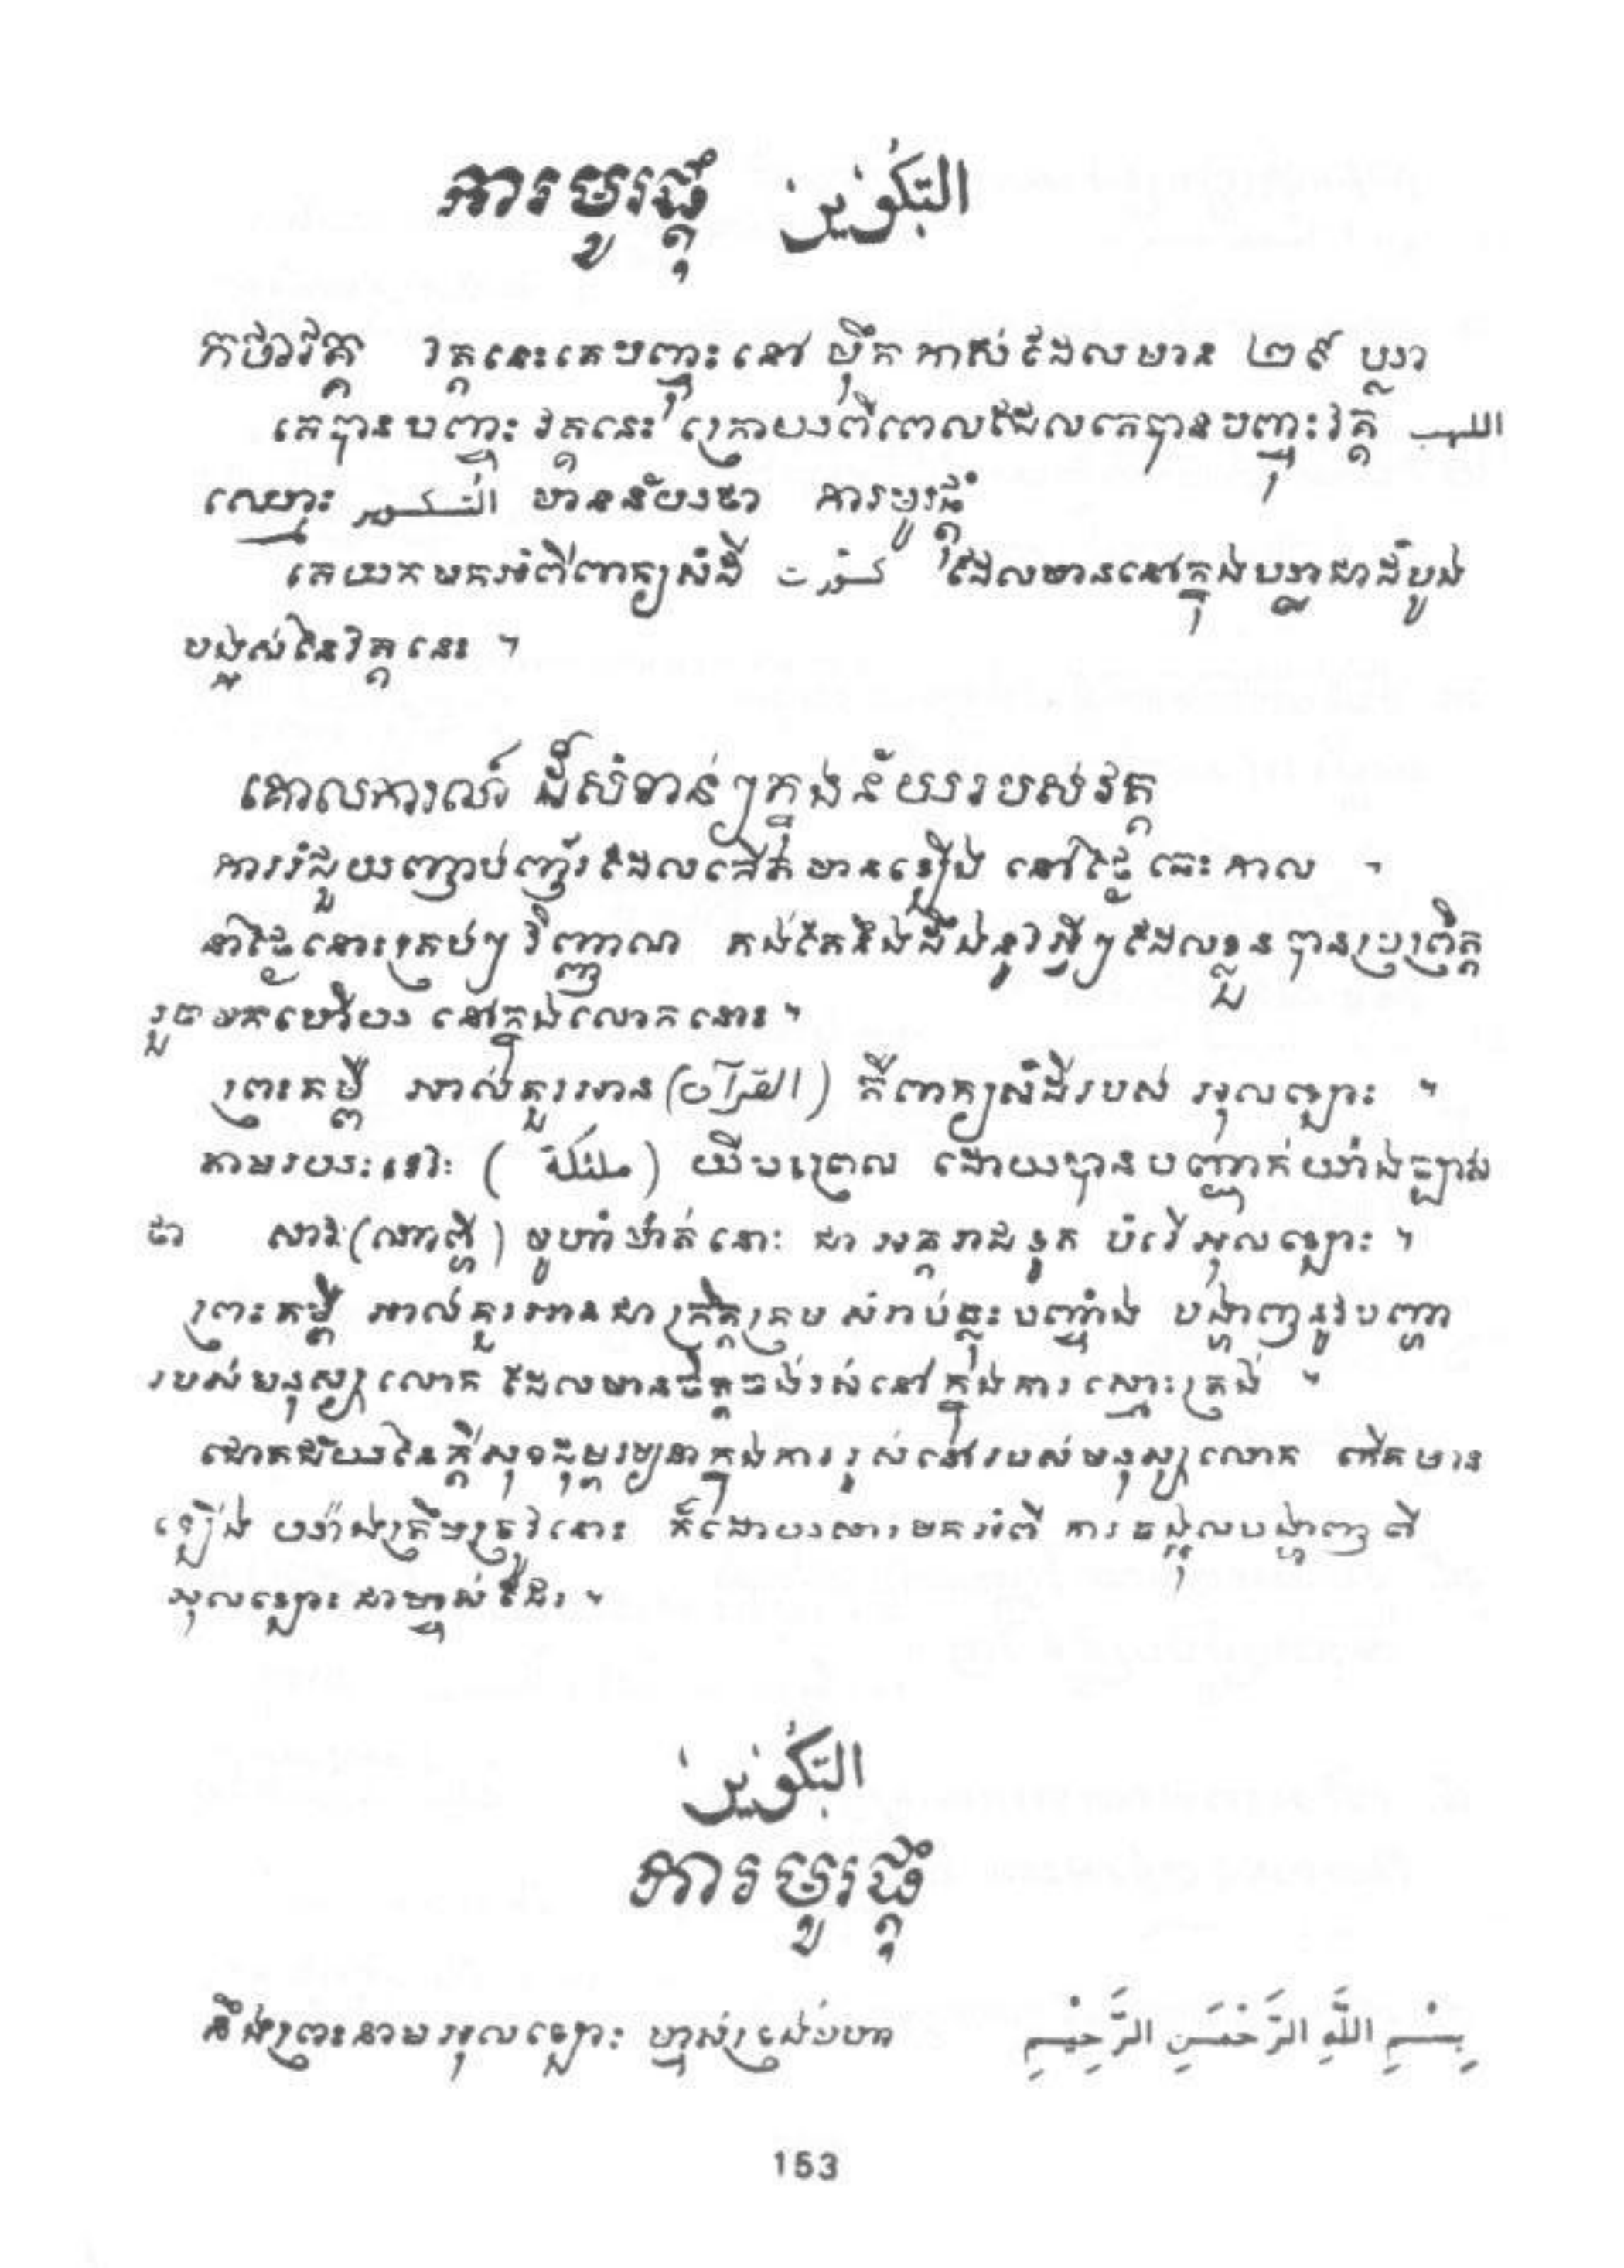 ការមូរផ្តុំ التَّكْوِيْرِ
កថាវគ្គ វគ្គនេះគេបញ្ចុះនៅ ម៉ឹកកាស់ដែលមាន ២៩ ប្លរា
គេបានបញ្ចុះវគ្គនេះ ក្រោយពីពេលដែលគេបានបញ្ចុះវគ្គ اللهب
ឈ្មោះ التكوير មានន័យថា ការមូរផ្តុំ
គេយកមកអំពីពាក្យសំដី كورت ដែលមាននៅក្នុងប្លរាជាដំបូង
បង្អស់នៃវគ្គនេះ ។
គោលការណ៍ ដ៏សំខាន់ៗក្នុងន័យរបស់វគ្គ
ការរំជួយញាប់ញ័រដែលកើតមានឡើង នៅថ្ងៃឆេះកាល ។
នាថ្ងៃនោះគ្រប់ៗវិញ្ញាណ គង់តែនឹងដឹងនូវអ្វីៗដែលខ្លួនបានប្រព្រឹត្ត
រួចមកហើយ នៅក្នុងលោកនោះ ។
ព្រះគម្ពី អាល់គួរអាន (القرآن) គឺពាក្យសំដីរបស់ អុលឡោះ ។
តាមរយៈទេវៈ ( ملئكة ) យីបព្រេល ដោយបានបញ្ជាក់យ៉ាងច្បាស់
ថា សារៈ(ណាព្ហី) មូហាំម៉ាត់នោះ ជា អគ្គរាជទូត បំរើអុលឡោះ ។
ព្រះគម្ពី អាល់គួរអានជាក្រឹត្យក្រម សំរាប់ឆ្លុះបញ្ចាំង បង្ហាញនូវបញ្ហា
របស់មនុស្សលោក ដែលមានចិត្តចង់រស់នៅក្នុងការស្មោះត្រង់ ។
ជោគជ័យនៃក្តីសុខដុម្មរម្យនាក្នុងការរស់នៅរបស់មនុស្សលោក កើតមាន
ឡើង យ៉ាងត្រឹមត្រូវនោះ ក៏ដោយសារមកអំពី ការចង្អុលបង្ហាញ ពី
អុលឡោះជាម្ចាស់ដែរ ។
التَّكْوِيْرِ
ការមូរផ្តុំ
នឹងព្រះនាមអុលឡោះ ម្ចាស់ទ្រង់មហា بِسْمِ اللَّهِ الرَّحْمَنِ الرَّحِيْمِ
153